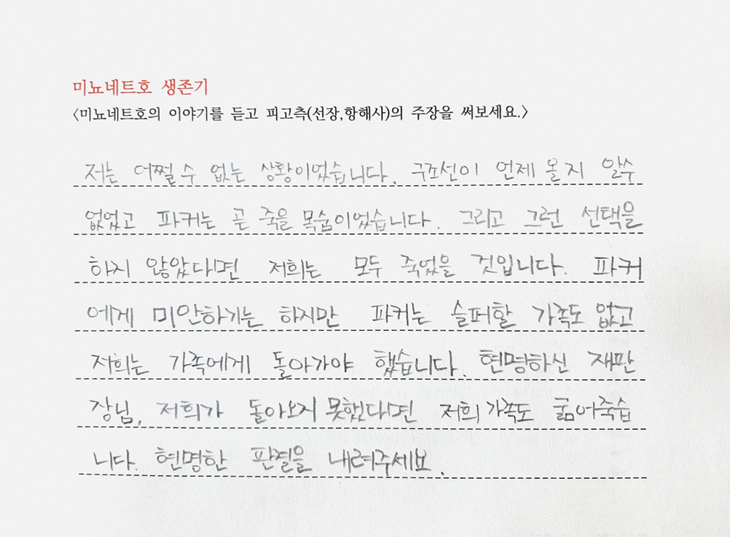 미뇨네트호 생존기
<미뇨네트호의 이야기를 듣고 피고측(선장,항해사)의 주장을 써보세요.>
저는 어쩔 수 없는 상황이었습니다. 구조선이 언제 올지 알수
없었고 파커는 곧 죽을 목숨이었습니다. 그리고 그런 선택을
하지 않았다면 저희는 모두 죽었을 것입니다. 파커
에게 미안하기는 하지만 파커는 슬퍼할 가족도 없고
저희는 가족에게 돌아가야 했습니다. 현명하신 재판
장님, 저희가 돌아오지 못했다면 저희 가족도 굶어죽습
니다. 현명한 판결을 내려주세요.